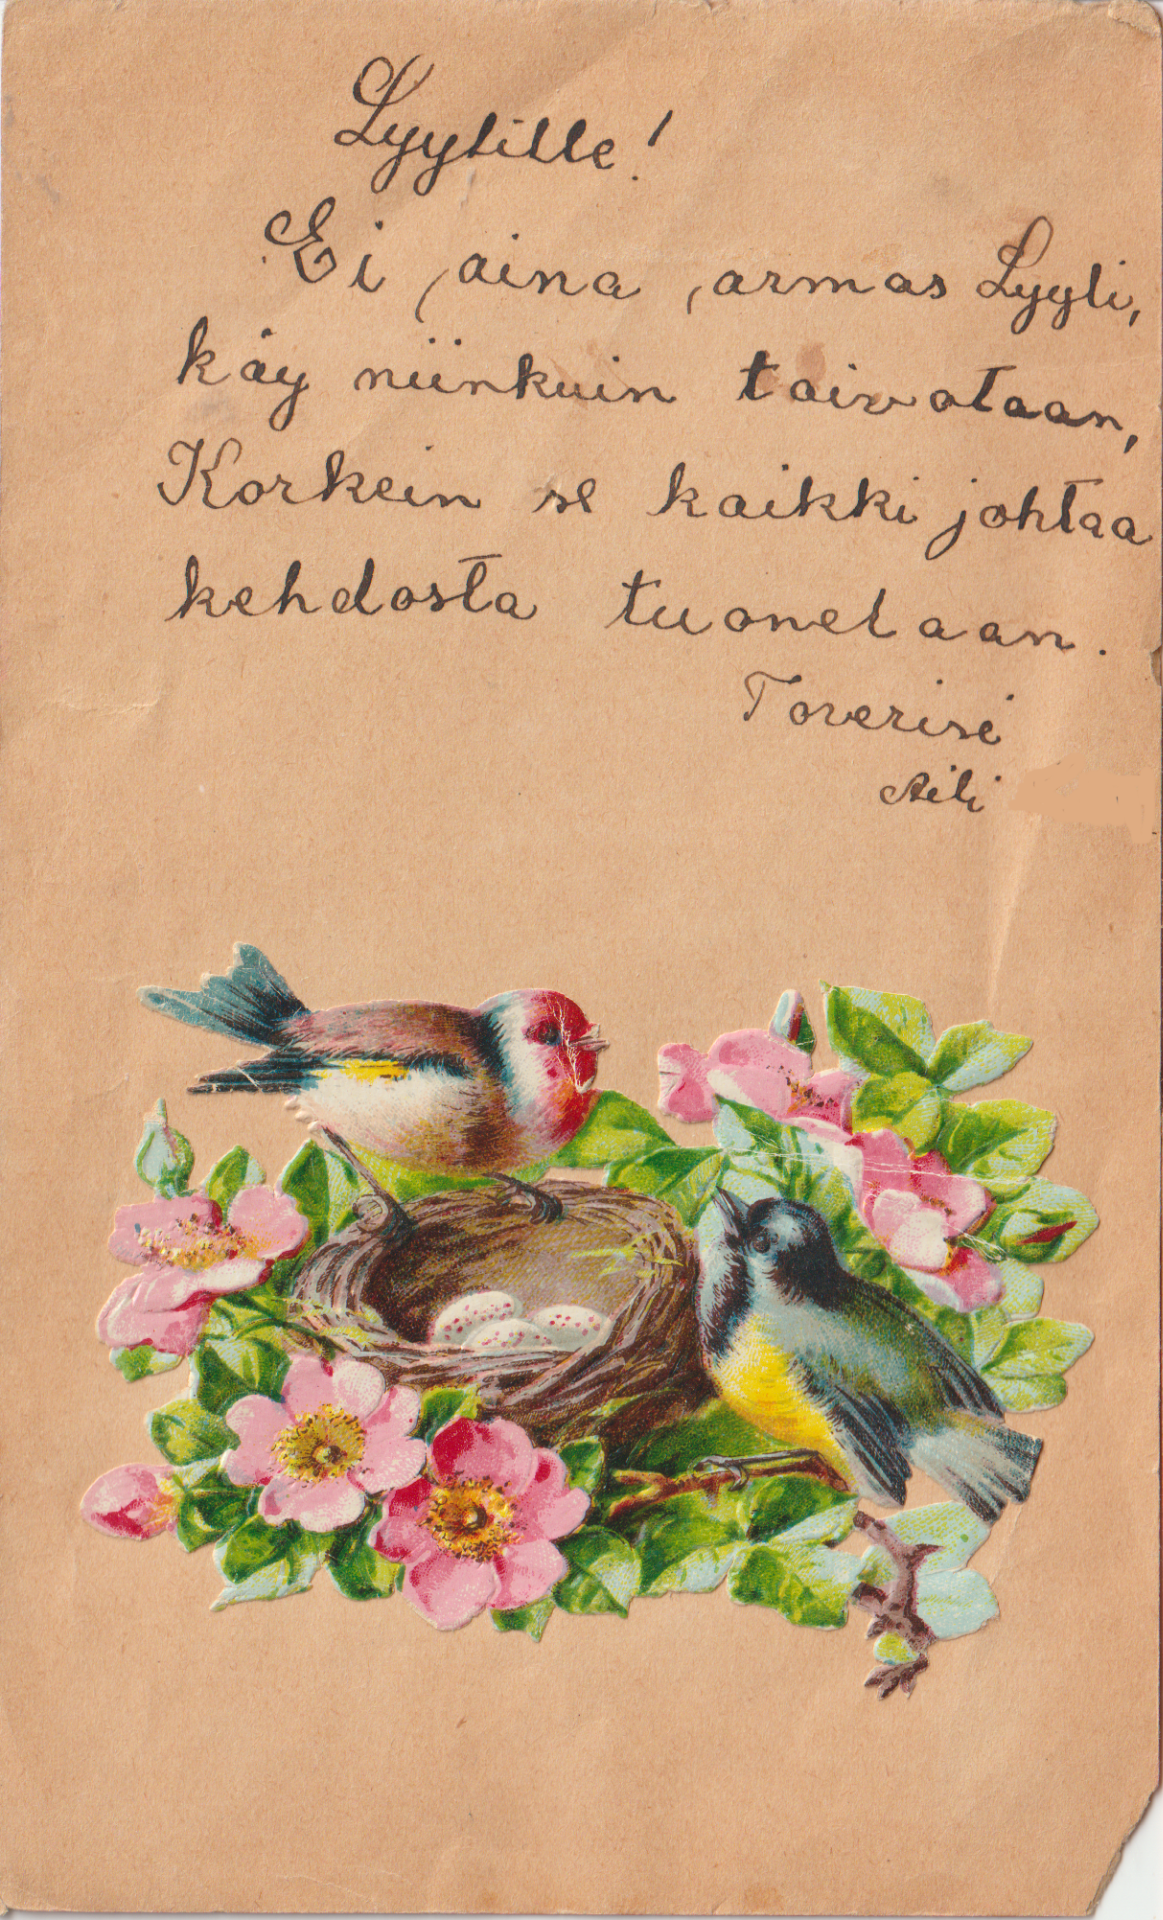 Lyylille!
Ei aina, armas Lyyli,
käy niinkuin toivotaan,
Korkein se kaikki johtaa
kehdosta tuonelaan.
Toverisi
Aili